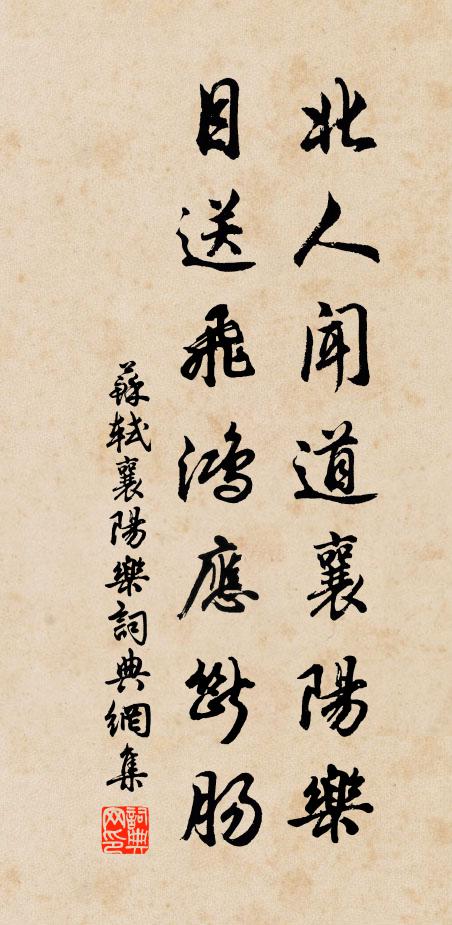 北人聞道襄陽樂
目送飛鴻應斷腸
蘇軾襄陽樂詞典網集
詞典网印